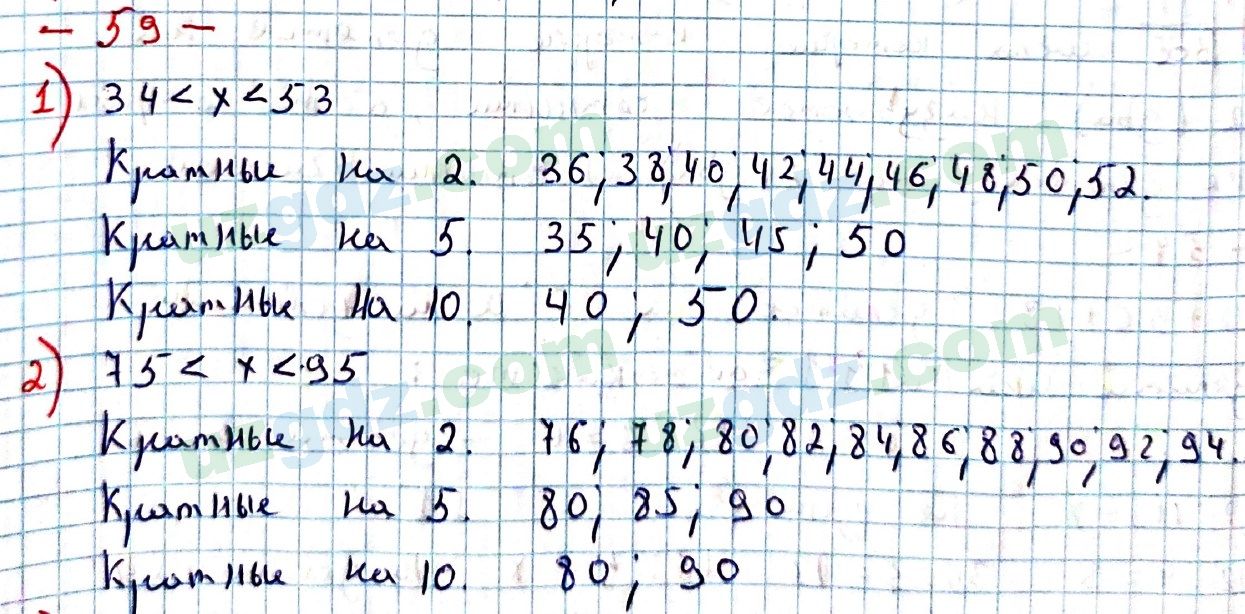 - 59 -
1) 34 < x < 53
Кратные на 2. 36; 38; 40; 42; 44; 46; 48; 50; 52.
Кратные на 5. 35; 40; 45; 50
Кратные на 10. 40; 50.
2) 75 < x < 95
Кратные на 2. 76; 78; 80; 82; 84; 86; 88; 90; 92; 94.
Кратные на 5. 80; 85; 90
Кратные на 10. 80; 90
uzgdz.com
uzgdz.com
uzgdz.com
uzgdz.com